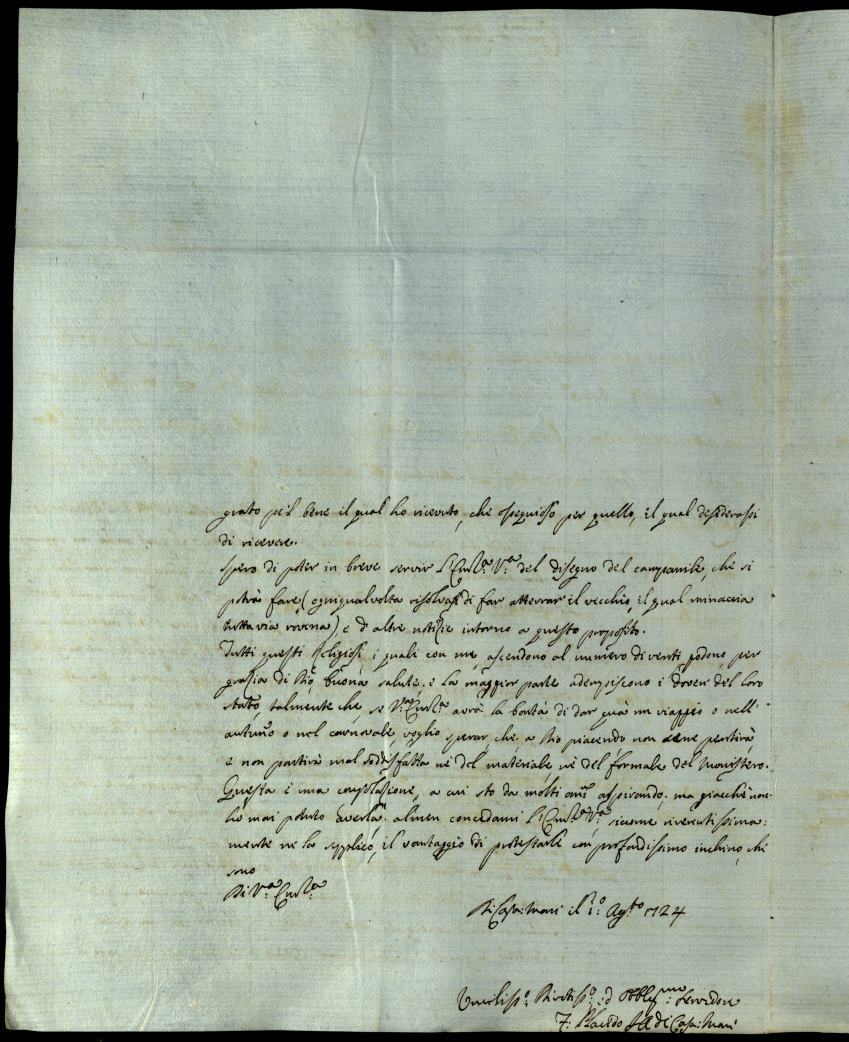 grato pel bene il qual ho ricevuto, che ossequioso per quello, il qual desiderassi
di ricevere.
Spero di poter in breve servir l'Em.za V.a del disegno del campanile, che si
potrà fare (ogniqualvolta risolvasi di far atterrar il vecchio, il qual minaccia
tuttavia rovina) e d'altre notizie intorno a questo proposito.
Tutti questi Religiosi, i quali con me ascendono al numero di venti godono, per
grazia di Dio, buona salute; e la maggior parte adempiscono i doveri del loro
stato, talmente che, se V.a Em.za avrà la bontà di dar quà un viaggio o nell'
autuño o nel carnovale voglio sperar che, a Dio piacendo non sene pentirà,
e non partirà mal soddisfatta nè del materiale nè del formale del Monistero.
Questa è una consolazione, a cui sto da molti anni aspirando; ma giacchè non
l'ho mai potuto averla, almen concedami l'Em.za V.a, siccome riverentissima:
mente ne la supplico, il vantaggio di protestarle con profondissimo inchino, che
sono
Di V.a Em.za
Di Casa-Mari il 1.o Ag.to 1724
Umiliss.o Divotiss.o ed Obblig.mo Servidore
F. Placido di Casa-Mari